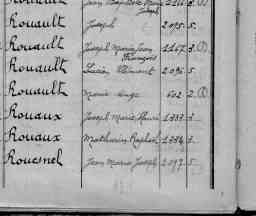 Rouault Joseph 2095. 5.
Rouault Joseph Marie Jean 1167. 3. (2)
François
Rouault Lucien Clément 2096. 5.
Rouault Marie Ange 602 2. (2)
Rouaux Joseph Marie Henri 1383. 3.
Rouaux Mathurin Raphaël 1384. 3.
Rouesnel Jean Marie Joseph 2097. 5.